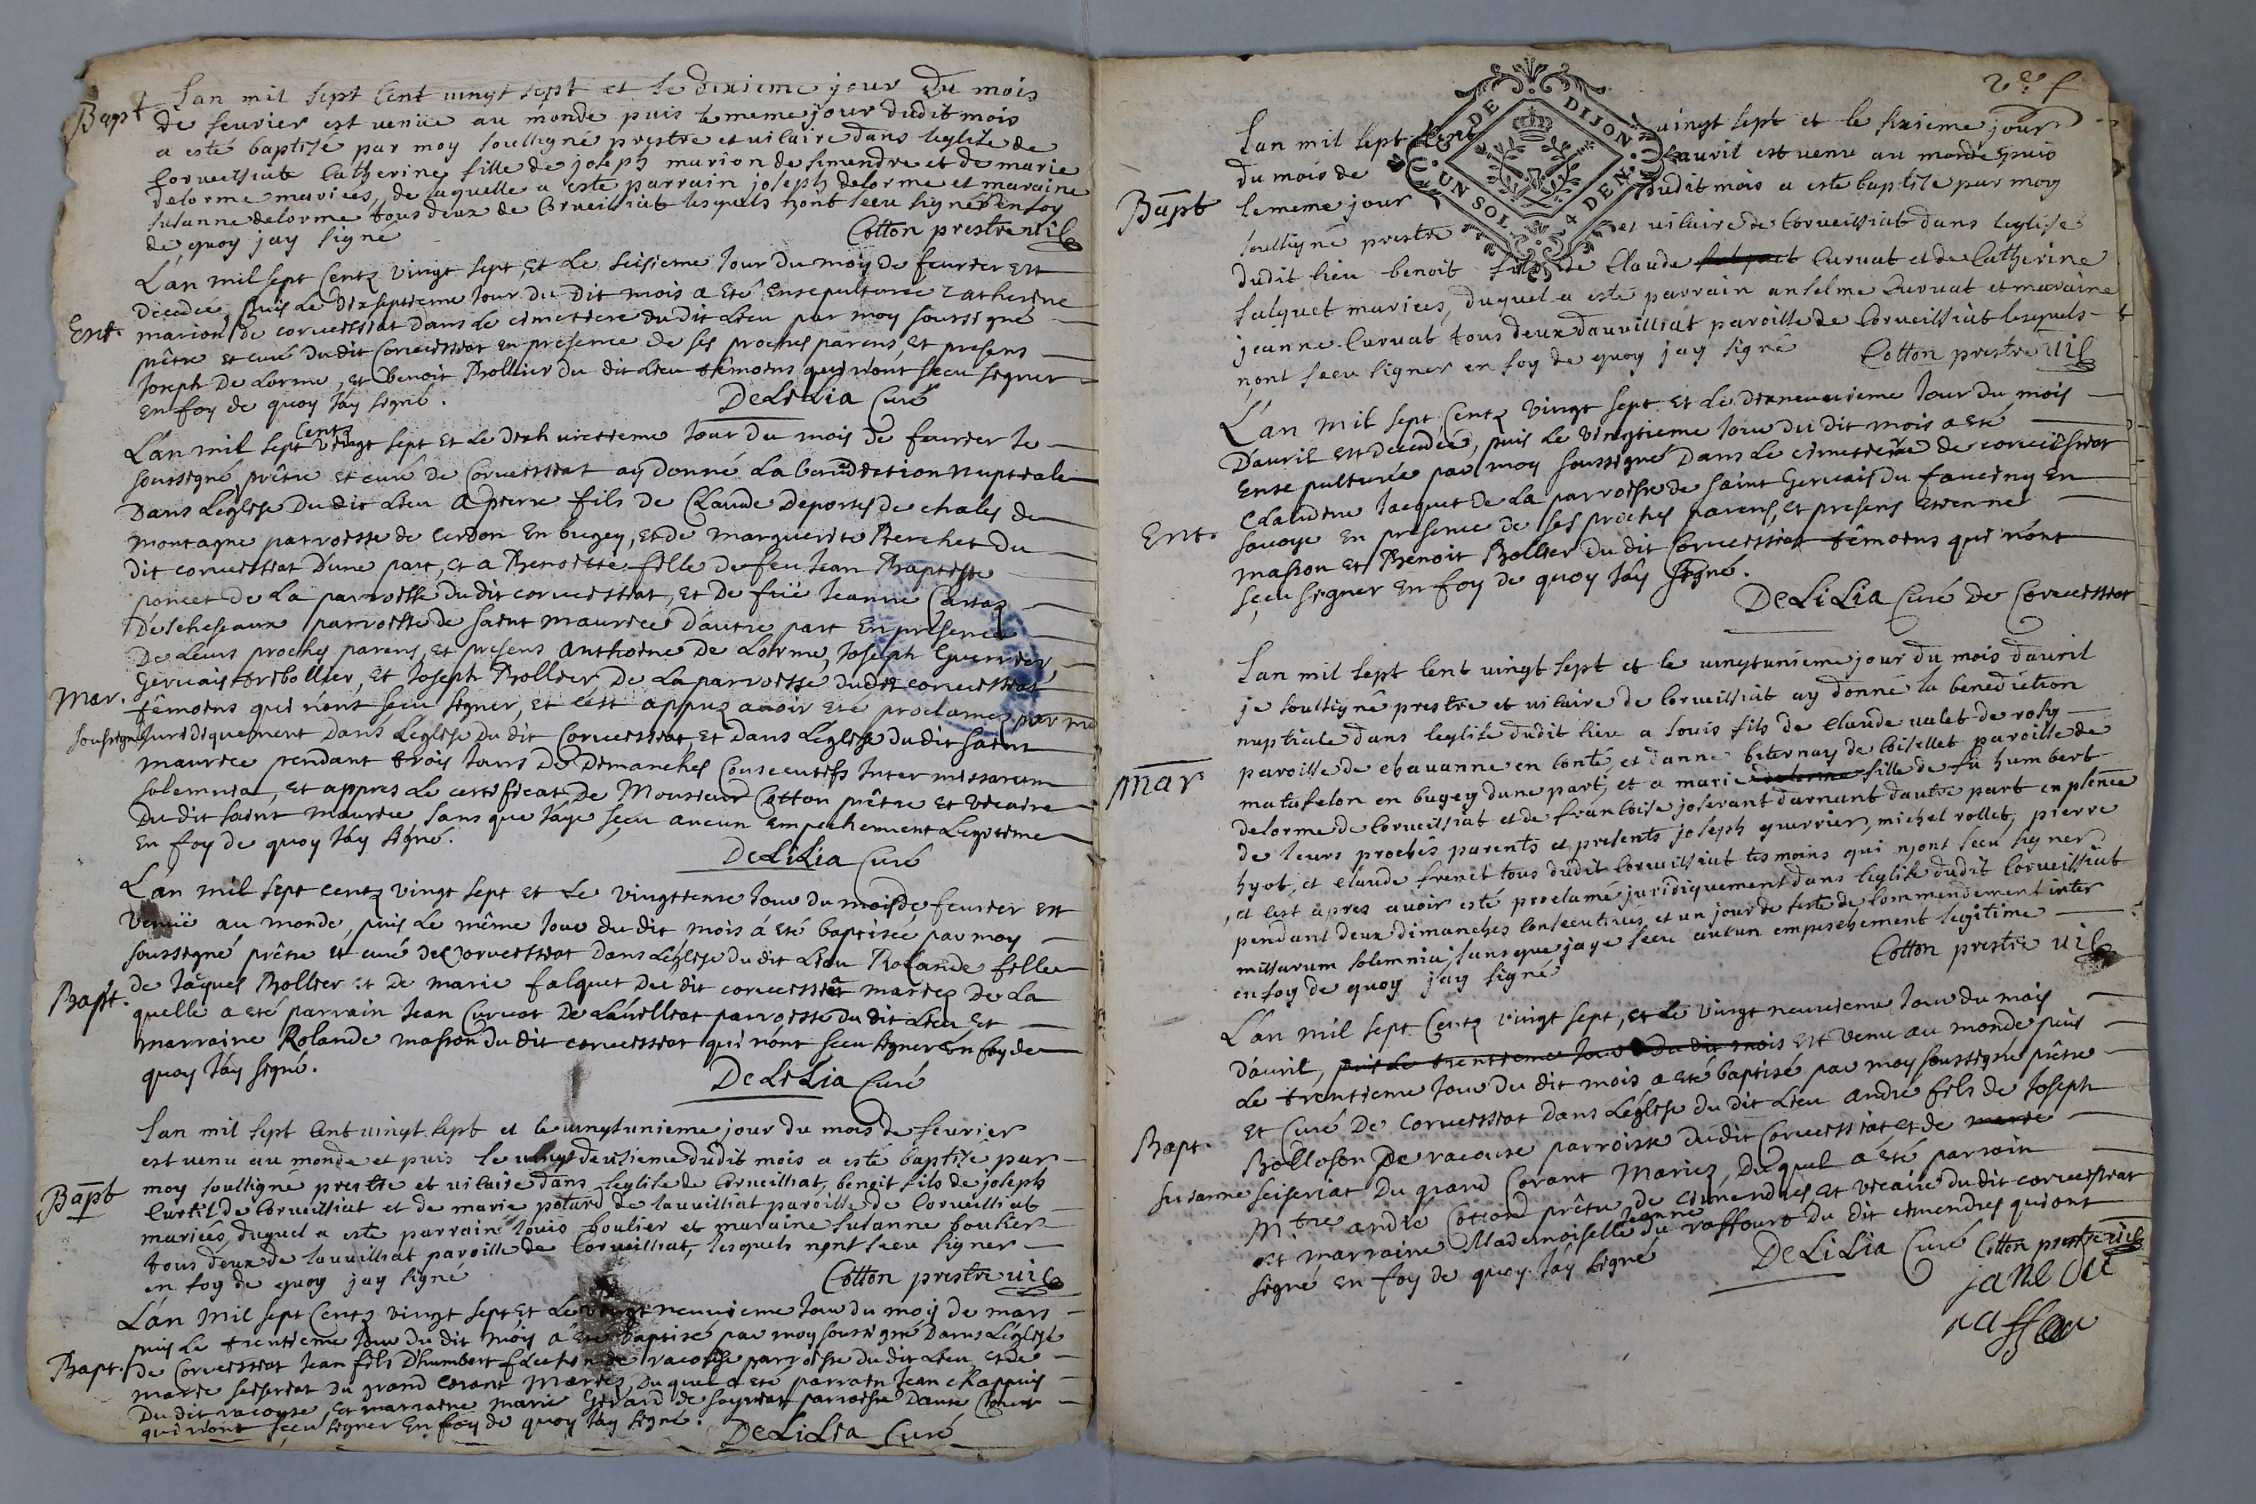 Bapt
Lan mil sept Cent vingt sept et le dixieme jour du mois
de feurier est venüe au monde puis le meme jour dudit mois
a esté baptisé par moy soussigné prestre et vicaire dans leglise de
Corveissiat Catherine fille de joseph marion de simandre et de marie
delorme mariées, de laquelle a esté parrain joseph delorme et maraine
susanne delorme tous deux de Corveissiat lesquels nont sceu signer en foy
de quoy jay signé
Cotton prestre vic
Ent.
L'an mil sept Centz vingt sept et le seisieme Jour du moy de feurier est
decedée, puis le dixseptieme Jour du dit mois a eté ensepulturée Catherine
marion de corveissiat dans le cimetiere du dit Lieu par moy soussigné
prêtre et curé du dit Corveissiat en présence de ses proches parens, et presens
Joseph De Lorme, et Benoit Bollier du dit Lieu têmoins qui n'ont sceu signer
en foy de quoy Jáy signé.
DeLiLia Curé
Mar.
L'an mil sept Centz vingt sept et le dixhuictieme Jour du mois de feurier Je
soussigné, prêtre et curé de Corveissiat ay donné La benediction nuptiale
Dans L'eglise Du dit Lieu a pierre fils de Claude Deportes de chales de
montagne parroisse de cerdon En bugey, et de marguerite Berchet du
dit corveissiat D'une part, et a Benoitte fille de feu Jean Baptiste
poncet de La parroisse du dit corveissiat, et De füe Jeanne Cartaz
Descheseaux parroisse de saint maurice d'autre part En présence
De Leurs proches parens, et présens anthoine De Lorme, Joseph Guerrier,
Gervais Trebollier, et Joseph Bollier De La parroisse dudit corveissiat
têmoins qui n'ont sceu signer, et c'est apprez avoir eté proclamez par moi
soussigné Juridiquement Dans L'eglise Du dit Corveissiat, et Dans L'eglise du dit saint
maurice pendant trois Jours De Dimanches Consecutifs Inter missarum
solemnia, et appres Le certificat De Monsieur Cotton prêtre et vicaire
Du dit saint maurice sans que J'aye sceu aucun empechement Legitime
En foy de quoy Jáy signé.
DeLiLia Curé
Bapt.
L'an mil sept centz vingt sept et Le vingtieme Jour du mois de feurier est
venüe au monde, puis Le même Jour du dit mois á eté baptisée par moy
soussigné prêtre et curé de Corveissiat Dans L'église du dit Lieu Rolande fille
de Jâques Bollier et De marie falquet Du dit corveissiat mariez De La
quelle a eté parrain Jean Curvat De Lávilliat parroisse du dit Lieu et
marraine Rolande masson du dit corveissiat qui n'ont sceu signer en foy de
quoy Jáy signé.
DeLiLia Curé
Bapt
Lan mil sept Cent vingt sept et le vingtunieme jour du mois de feurier
est venu au monde et puis le vingt deusieme dudit mois a esté baptisé par
moy soussigné prestre et vicaire dans leglise de Corveissiat, benoit fils de joseph
Curtil de Corveissiat et de marie potard de lauvilliat paroisse de Corveissiat
mariées, duquel a esté parrain louis boulier et maraine susanne boulier
tous deux de lauvilliat paroisse de Corveissiat, lesquels nont sceu signer
en foy de quoy jay signé
Cotton prestre vic
Bapt.
L'an mil sept Centz vingt sept, et Le vingt neuvieme Jour du moy de mars
puis Le trentieme Jour du dit mois a eté baptisé par moy soussigné Dans L'église
de Corveissiat Jean fils D'humbert de racouse parroisse du dit Lieu, et de
marie seiseriat du grand Corant mariez Du quel a eté parrain Jean Chappuis
Du dit racouse, et marraine marie Gerard de soyriat parroisse Dause
qui n'ont sceu signer En foy de quoy Jay signé.
DeLiLia Curé
Bapt
GN. DE DIJON.
UN SOL. 4 DEN.
Lan mil sept Cent vingt sept et le sixieme jour
du mois de d'avril est venu au monde, puis
le meme jour dudit mois a esté baptisé par moy
soussigné prestre et vicaire de Corveissiat dans leglise
dudit lieu benoit fils de Claude falquet Curvat et de Catherine
falquet mariées, duquel a esté parrain anselme Curvat et maraine
jeanne Curvat tous deux dauvilliat paroisse de Corveissiat lesquels
nont sceu signer en foy de quoy jay signé
Cotton prestre vic
Ent.
L'an mil sept Centz vingt sept et le dixneuvieme Jour du mois
D'avril est decedée, puis Le vingtieme Jour du dit mois a eté
Ensepulturée par moy soussigné Dans Le cimetiere de corveissiat
Claudine Jacquet de La parroisse de saint Gervais du faucing En
savoye En présence de ses proches parens, et presens etienne
masson et Benoit Bollier du dit Corveissiat têmoins qui n'ont
sceu signer En foy de quoy Jáy signé.
DeLiLia Curé de Corveissiat
mar
Lan mil sept Cent vingt sept et le vingtunieme jour du mois davril
je soussigné prestre et vicaire de Corveissiat ay donné la benediction
nuptiale dans leglise dudit lieu a louis fils de Claude valet de rosy
paroisse de chavanne en Conté et danne biternay de Coisellet paroisse de
matafelon en bugey dune part, et a marie delorme fille de fü humbert
delorme de Corveissiat et de francoise joserant darnant dautre part en plence
de leurs proches parents et presents joseph guerrier, michel rollet, pierre
hyot, et Claude frenet tous dudit Corveissiat tesmoins qui nont sceu signer
, et cest apres avoir esté proclamé juridiquement dans leglise dudit Corveissiat
pendant deux dimanches Consecutives et un jour de feste de Commendement inter
missarum solemnia, sans que jaye sceu aucun empeschement legitime
en foy de quoy jay signé
Cotton prestre vic
Bapt.
L'an mil sept Centz vingt sept, et Le vingt neuvieme Jour du mois
D'avril, puis Le trentieme Jour du dit mois est venu au monde puis
Le trentieme Jour du dit mois a eté baptisé par moy soussigné prêtre
et Curé De Corveissiat Dans L'église du dit Lieu andré fils de Joseph
Bolloson De racouse parroisse du dit Corveissiat et de marie
susanne seiseriat Du grand Corant mariez, Du quel á eté parrain
M.tre andré Cotton prêtre de cimendres, et vicaire du dit corveissiat
et marraine Mademoiselle jeanne du raffour du dit cimendres qui ont
signé en foy de quoy Jáy signé
DeLiLia Curé
Cotton prestre vic
jane du
raffour